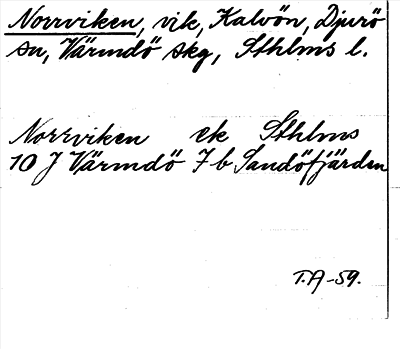 Norrviken, vik, Kalvön, Djurö
sn, Värmdö skg, Sthlms l.
Norrviken ek Sthlms
10 J Värmdö 7 b Sandöfjärden
T.A-59.